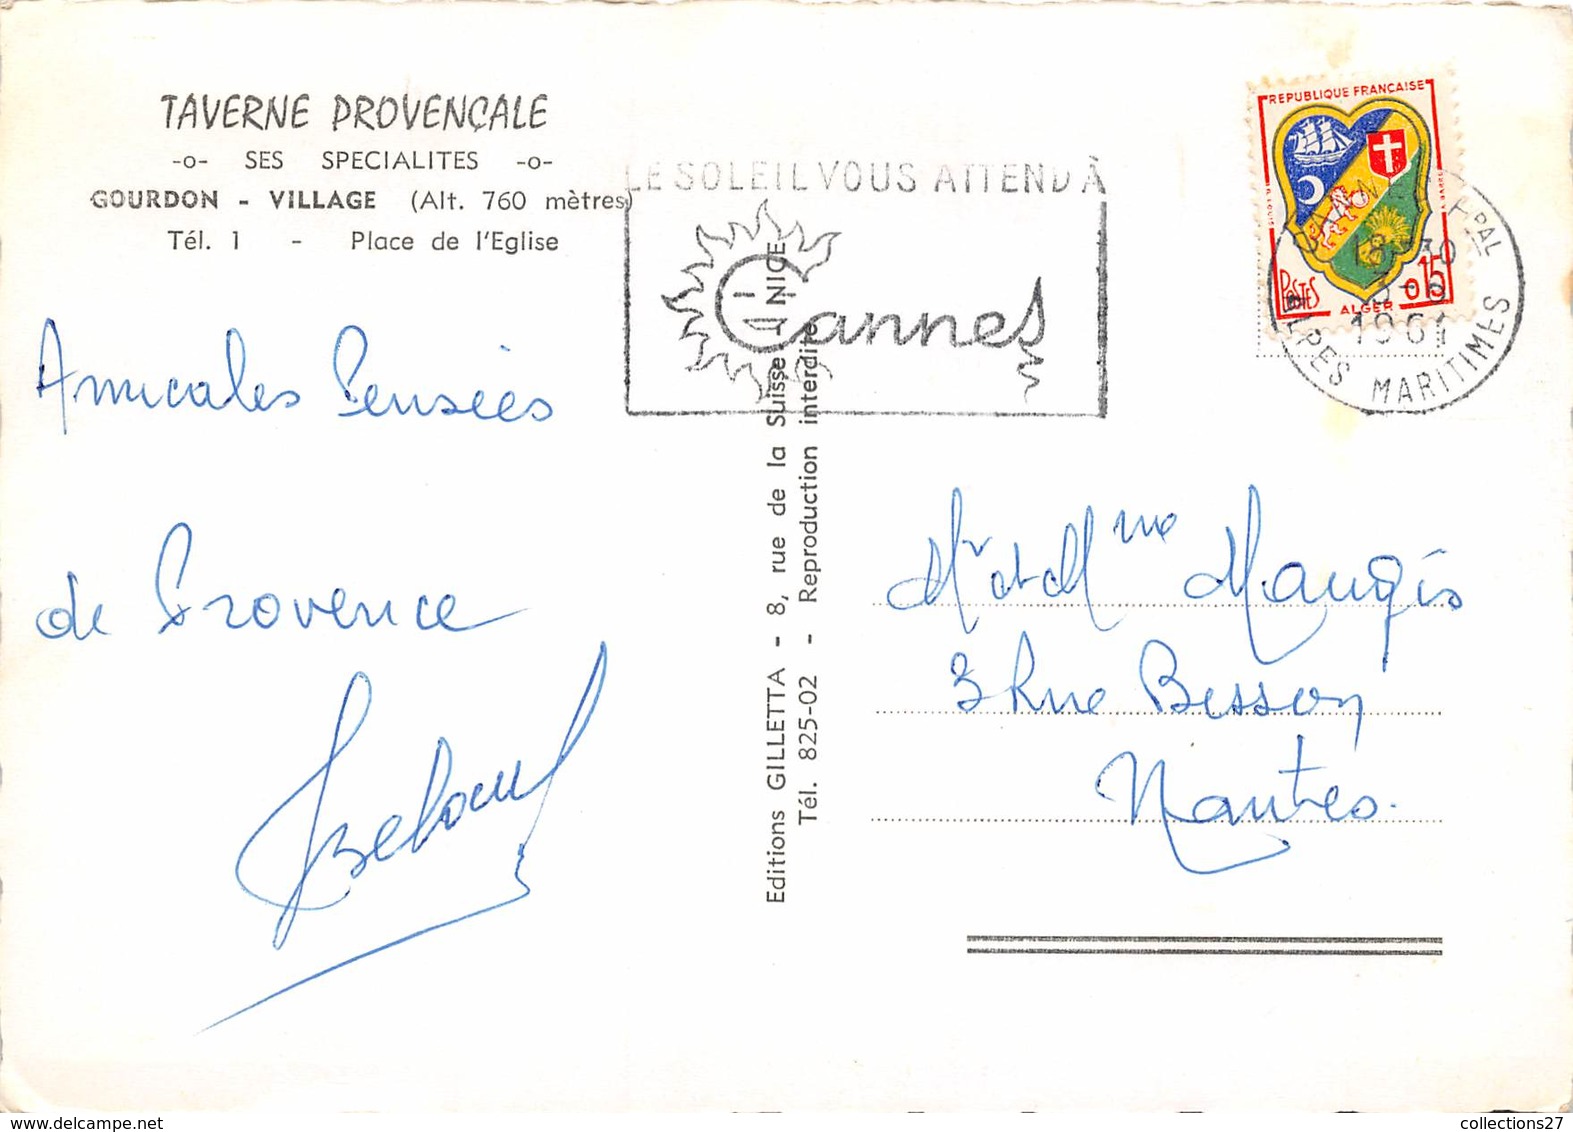 TAVERNE PROVENÇALE
-o- SES SPECIALITES -o-
GOURDON - VILLAGE (Alt. 760 mètres)
Tél. 1 - Place de l'Eglise
Amicales Pensées
de Provence
LE SOLEIL VOUS ATTEND À
Cannes
Editions GILLETTA - 8, rue de la Suisse - NICE
Tél. 825-02 - Reproduction interdite
REPUBLIQUE FRANÇAISE
POSTES
ALGER
0,15
CANNES PPAL
1961
ALPES MARITIMES
Mr et Mme Maugis
3 Rue Besson
Nantes.
delcampe.net
collections27